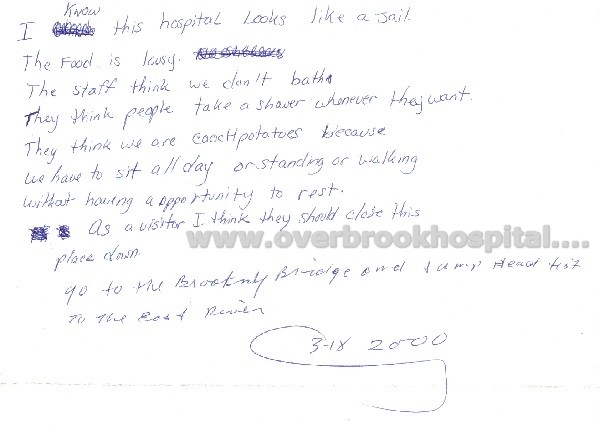 Know
I this hospital Looks like a Jail.
The Food is lousy.
The staff think we don't bath
They think people take a shower whenever they want.
They think we are coochpotatoes because
we have to sit all day or standing or walking
without having a opportunity to rest.
As a visitor I think they should close this
place down.
www.overbrookhospital....
go to the Bridge and Jump Head
To The East River
3-18 2000